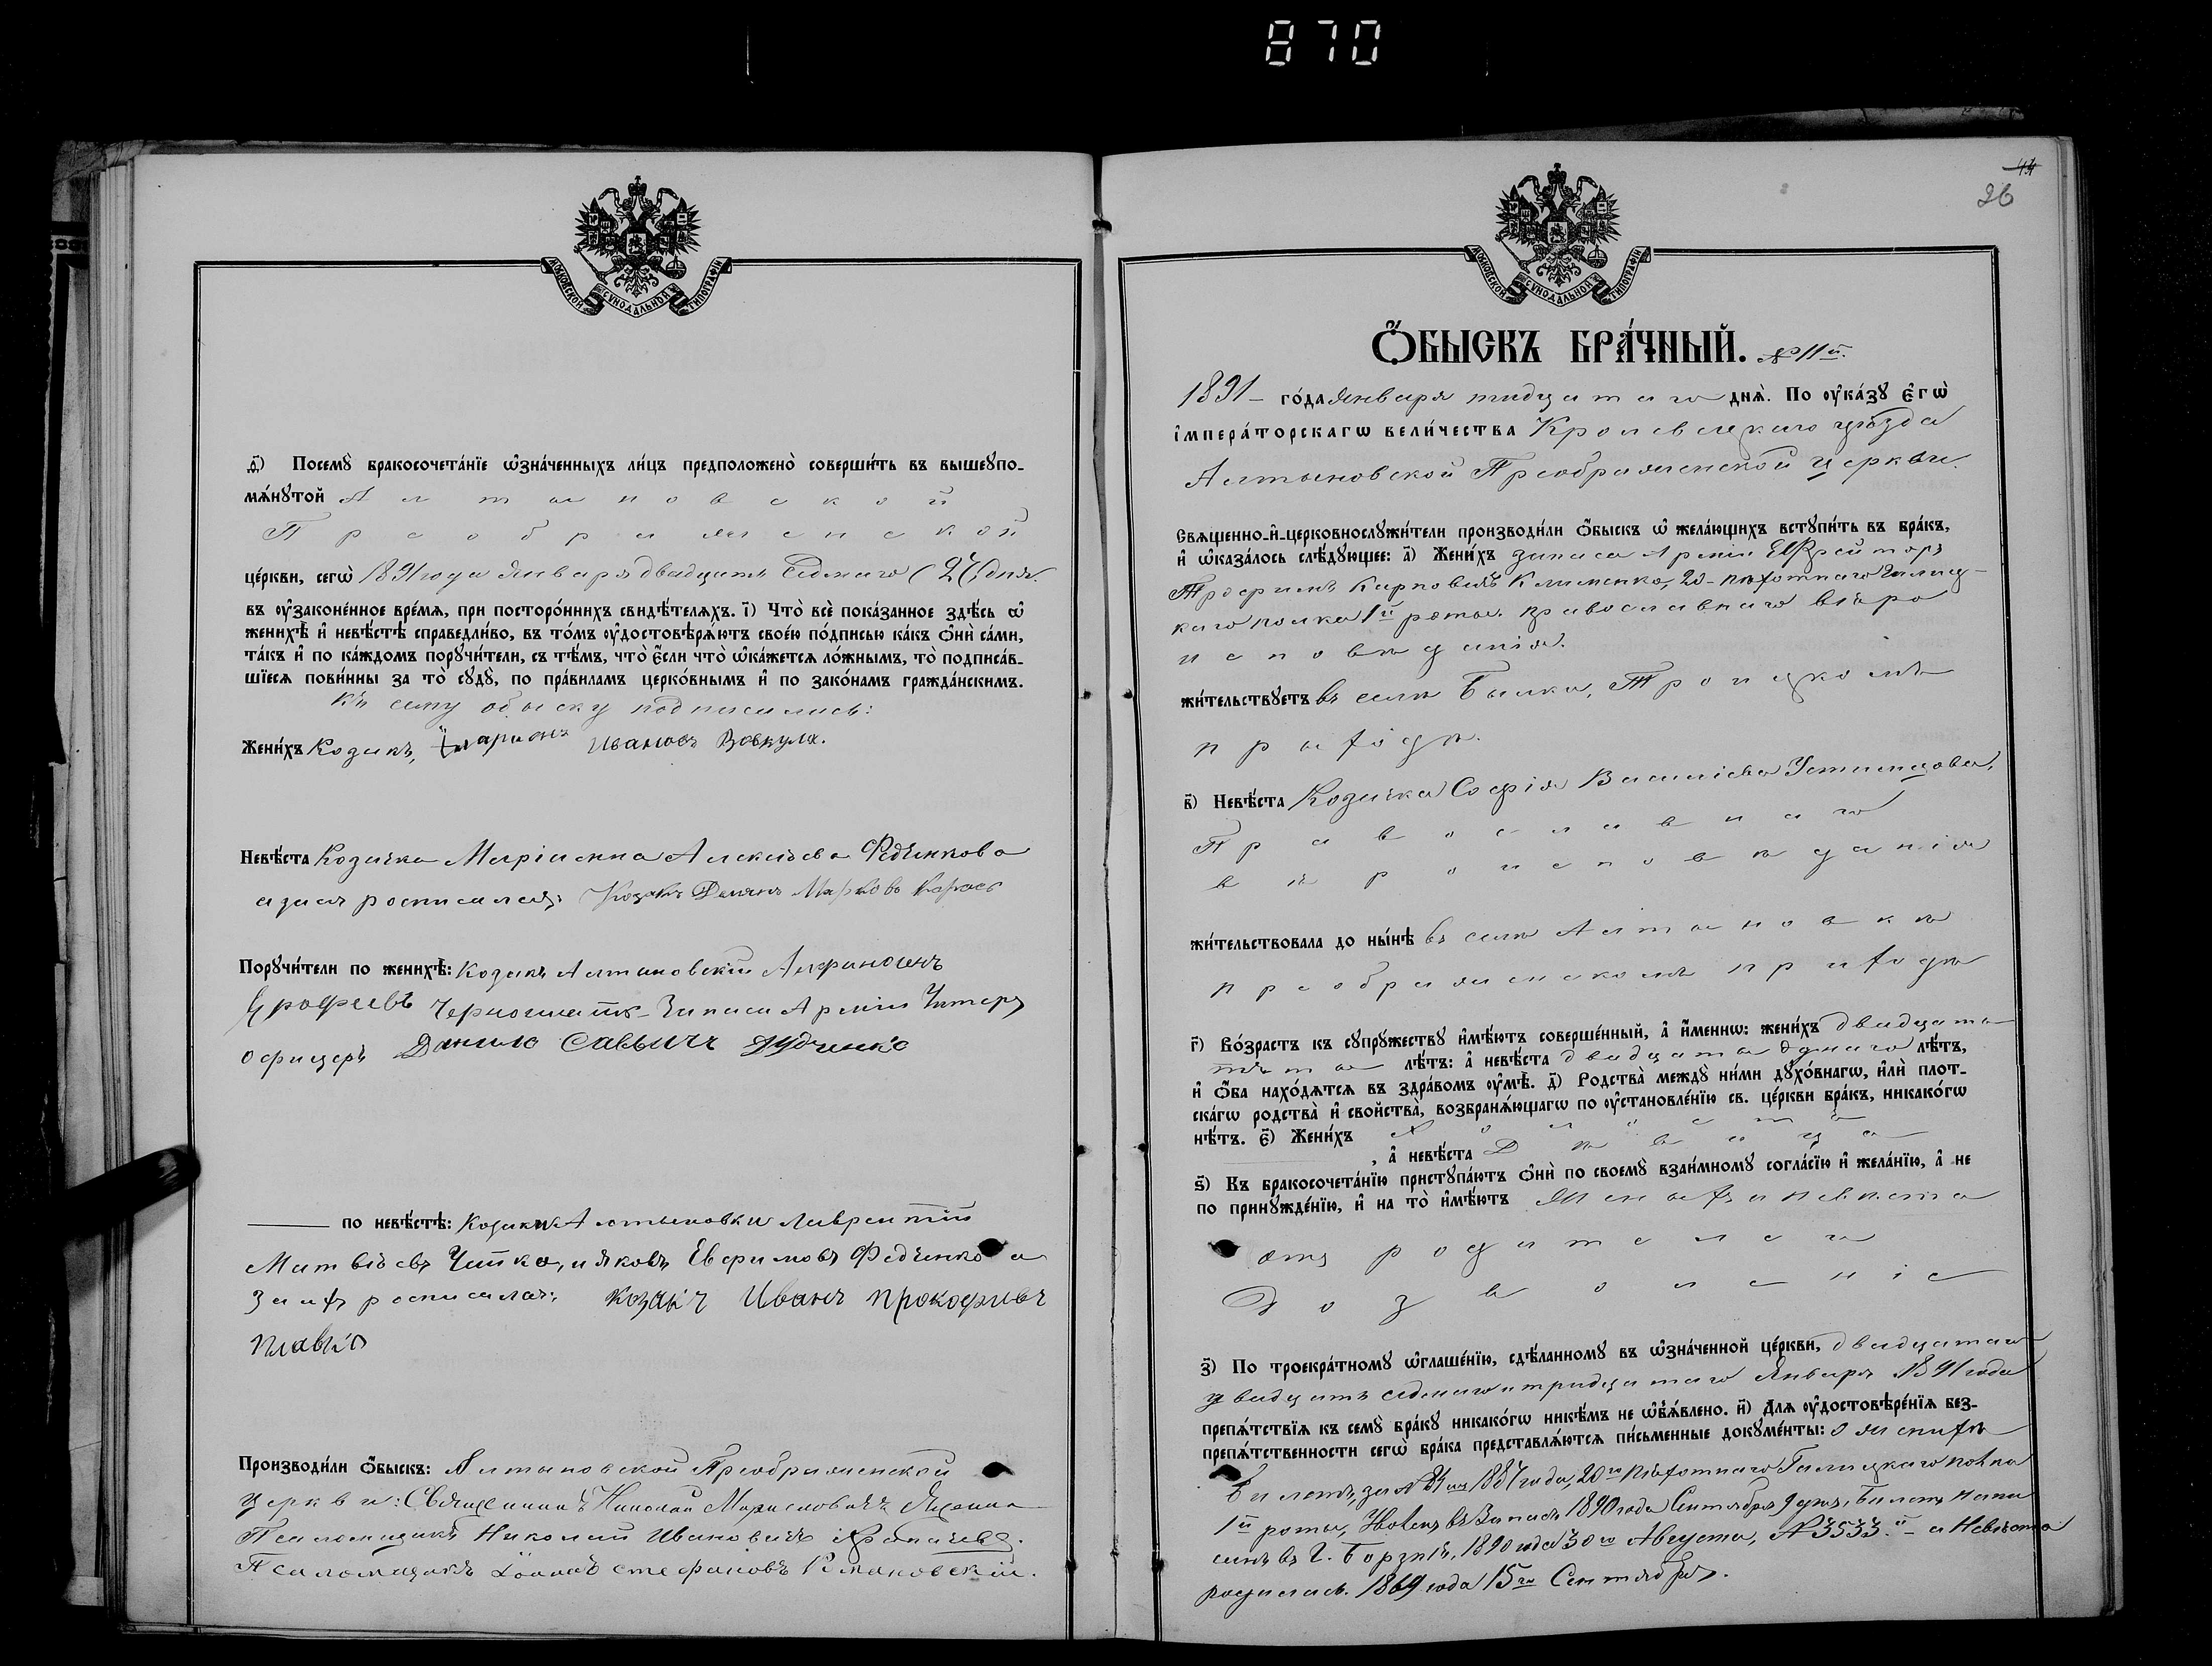 870
МОСКОВСКОЙ СѴНОДАЛЬНОЙ ТИПОГРАФІИ
д҃) Посемꙋ̀ бракосочета́нїе ѡ҆зна́ченныхъ ли́цъ предположено̀ соверши́ть въ вышеꙋпо-
мѧ́нꙋтой Алтыновской
Преображенской
це́ркви, сегѡ̀ 1891 года Января двадцать седмаго (27) дня
въ ᲂу҆зако́не́нное вре́мѧ, при посторо́ннихъ свидѣ́телѧхъ. і҃) Что̀ всѐ пока́занное здѣ́сь ѡ҆
женихѣ̀ и҆ невѣ́стѣ справедли́во, въ то́мъ ᲂу҆достовѣрѧ́ютъ свое́ю по́дписью ка́къ ѻ҆нѝ са́ми,
та́къ и҆ по ка́ждомъ порꙋчи́тели, съ тѣ́мъ, что̀ є҆́сли что̀ ѡ҆ка́жетсѧ ло́жнымъ, то̀ подписа́в-
шїесѧ пови́нны за то̀ сꙋдꙋ̀, по пра́виламъ церко́внымъ и҆ по зако́намъ гражда́нскимъ.
Къ сему обыску подписались:
Жени́хъ Козакъ, Иларионъ Ивановъ Вовкула.
Невѣ́ста Козачка Маріанна Алексѣева Федченкова
а за нея росписался: Козакъ Демянъ Марковъ Карась
Порꙋчи́тели по женихѣ̀: Козакъ Алтыновскій Анфиногенъ
Ерофеевъ Запаса Арміи Унтеръ
офицеръ Данило Саввичъ Дудченко
по невѣ́стѣ: Козаки Алтыновки Лаврентій
Матвѣевъ и Яковъ Евфимовъ Федченко а
за ихъ росписался: козакъ Иванъ Прокофиевъ
Плавко
Производи́ли ѻ҆́быскъ: Алтыновской Преображенской
церкви: Священникъ Николай
Псаломщикъ Николай Ивановичъ
Псаломщикъ Іоаннъ Стефановъ Романовскій.
44
26
МОСКОВСКОЙ СѴНОДАЛЬНОЙ ТИПОГРАФІИ
Ѻ҆́БЫСКЪ БРА́ЧНЫЙ. № 11й.
1891 – го́да Января тридцатаго днѧ̀. По ᲂу҆ка́зꙋ є҆гѡ̀
і҆мпера́торскагѡ вели́чества Кролевецкаго уѣзда
Алтыновской Преображенской церкви.
Свѧщенно-и҆-церковнослꙋжи́тели производи́ли ѻ҆́быскъ ѡ҆ жела́ющихъ встꙋпи́ть въ бра́къ,
и҆ ѡ҆каза́лось слѣ́дꙋющее: а҃) Жени́хъ запаса Арміи Ефрейторъ
Трофимъ Карповичъ Клименко, 20-пѣхотнаго Галиц-
каго полка 1й роты. православнаго вѣро
исповѣданія.
жи́тельствꙋетъ въ селѣ Билка, Троицкомъ
приходѣ.
в҃) Невѣ́ста Козачка Софія Василіева Устимцова,
Православнаго
вѣроисповѣданія
жи́тельствовала до ны́нѣ въ селѣ Алтыновкѣ
преображенскомъ приходѣ
г҃) Во́зрастъ къ сꙋпрꙋ́жествꙋ и҆мѣ́ютъ соверше́нный, а҆ и҆́меннѡ: жени́хъ двадцать
пяты лѣ́тъ: а҆ невѣ́ста двадцаты однаго лѣ́тъ,
и҆ ѻ҆́ба нахо́дѧтсѧ въ здра́вомъ ᲂу҆мѣ̀. д҃) Родства̀ междꙋ̀ ни́ми дꙋхо́внагѡ, и҆лѝ плот-
ска́гѡ родства̀ и҆ сво́йства̀, возбранѧ́ющагѡ по ᲂу҆становле́нїю св. це́ркви бра́къ, никако́гѡ
нѣ́тъ. є҃) Жени́хъ Холостъ
, а҆ невѣ́ста Дѣвица
ѕ҃) Къ бракосочета́нїю пристꙋпа́ютъ ѻ҆нѝ по своемꙋ̀ взаи́мномꙋ согла́сїю и҆ жела́нїю, а҆ не
по принꙋжде́нїю, и҆ на то̀ и҆мѣ́ютъ Женихъ и невѣста
отъ родителей
дозволеніе
з҃) По троекра́тномꙋ ѡ҆глаше́нїю, сдѣ́ланномꙋ въ ѡ҆зна́ченной це́ркви, двадцатаго
двадцать седмаго и тридцатаго Января 1891 года
препѧ́тствїѧ къ семꙋ̀ бра́кꙋ никако́гѡ никѣ́мъ не ѡ҆б̾ѧ́влено. и҃) Длѧ ᲂу҆достовѣре́нїѧ без-
препѧ́тственности сегѡ̀ бра́ка представлѧ́ютсѧ пи́сьменные докꙋме́нты: о женихѣ
Билетъ, за № 20го Пѣхотнаго Галицкаго полка
1й роты, въ Запасъ 1890 года Сентября 9 дня, Билетъ напи
санъ въ г. Борзнѣ, 1890 года 30го Августа, № 3533.й – а Невѣста
родилась. 1869 года 15го Сентября.